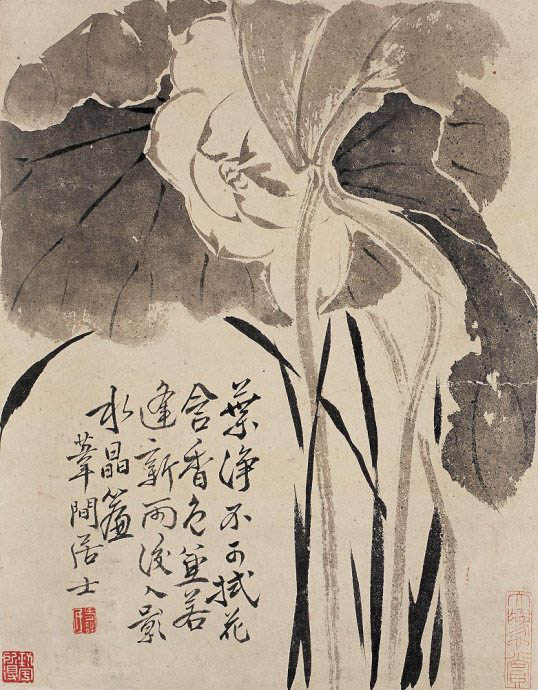 葉淨不可拭花
含香色兼若
逢新雨後入影
水晶簾
葦間居士